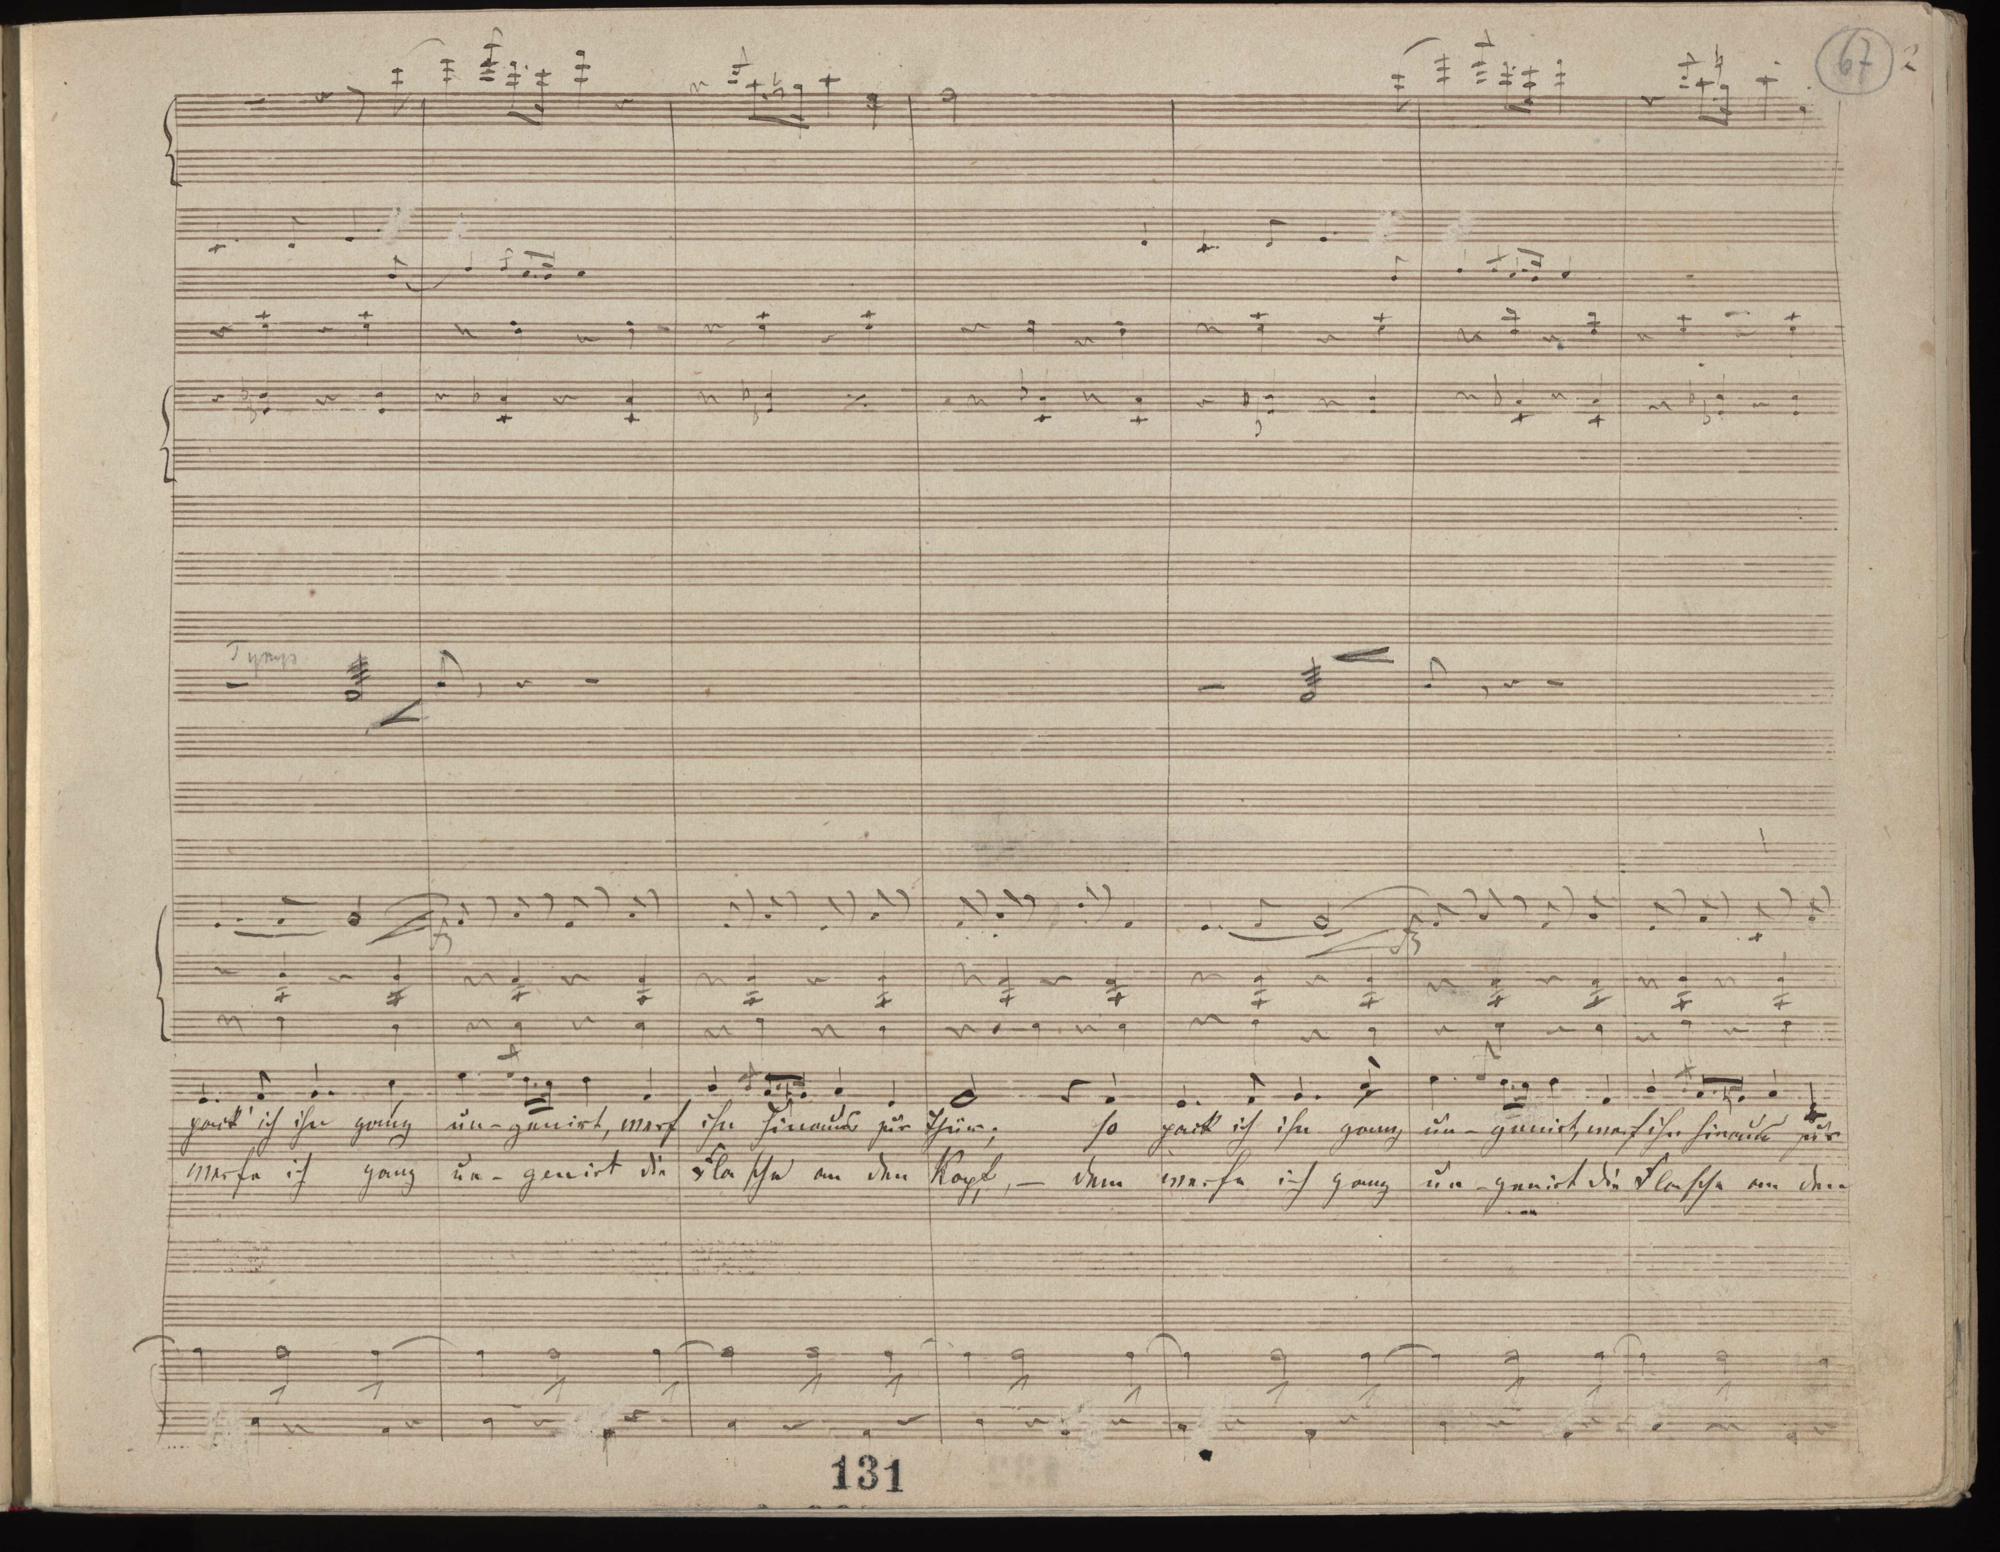 67 2
Tymp
pack' ich ihn ganz un-genirt, werf ihn hinaus zur Thür; so pack ich ihn ganz un-genirt, werf ihn hinaus zur
werfe ich ganz un-genirt die Flasche an den Kopf, – dem werfe ich ganz un-genirt die Flasche an den
131